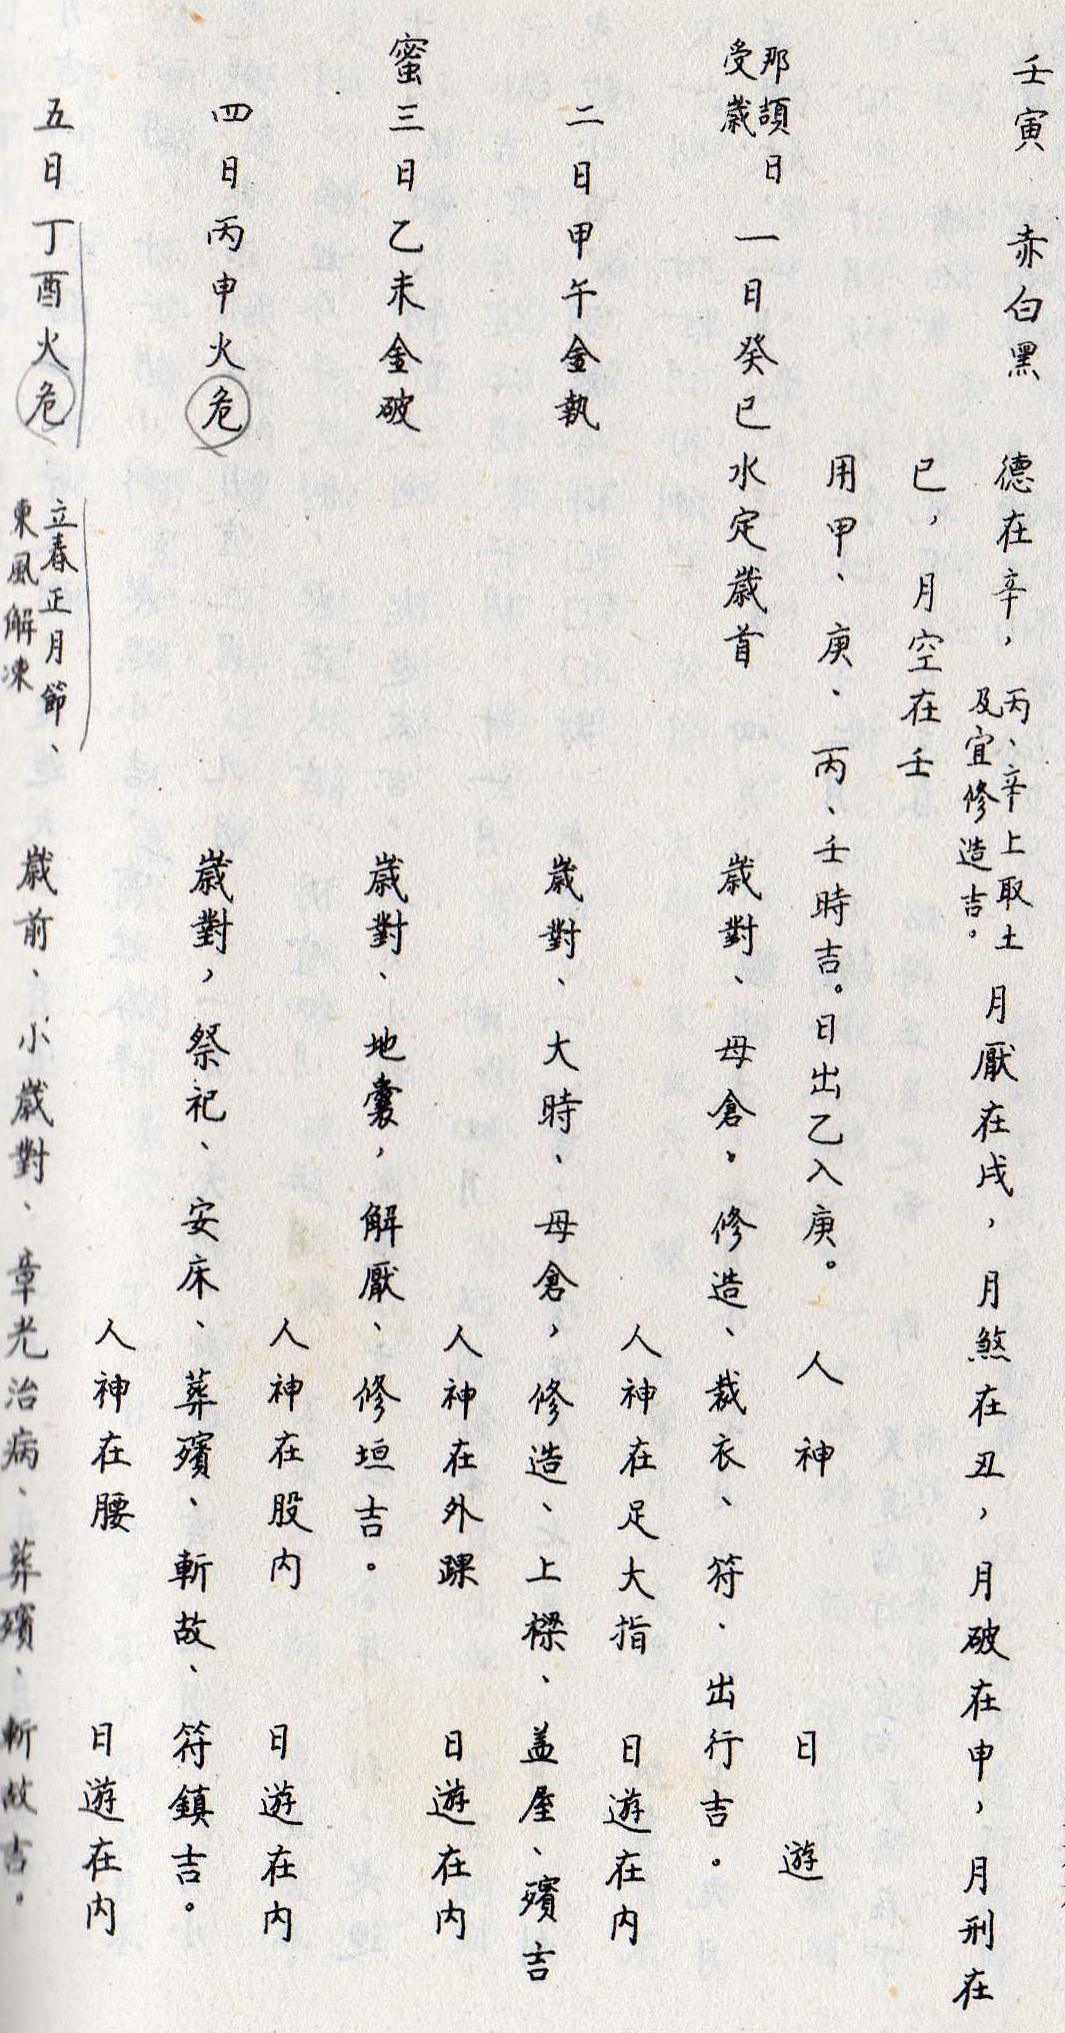 壬寅 赤白黑 德在辛，丙、辛上取土及宜修造吉。月厭在戌，月煞在丑，月破在申，月刑在
巳，月空在壬
用甲、庚、丙、壬時吉。日出乙入庚。 人神 日遊
那頡日 受歲 一日癸巳水定歲首 歲對、母倉。修造、裁衣、符、出行吉。
人神在足大指 日遊在内
二日甲午金執 歲對、大時、母倉，修造、上樑、盖屋、殯吉
人神在外踝 日遊在内
蜜三日乙未金破 歲對、地囊，解厭、修垣吉。
人神在股内 日遊在内
四日丙申火危 歲對，祭祀、安床、葬殯、斬故、符鎮吉。
人神在腰 日遊在内
五日丁酉火危 立春正月節、東風解凍 歲前、小歲對、章光治病、葬殯、斬故吉。